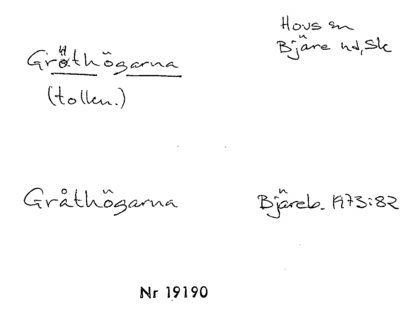 Hovs sn
Bjäre hd, Sk
Gråthögarna
(tolkn.)
Gråthögarna
Bjäreb. 1973:82
Nr 19190